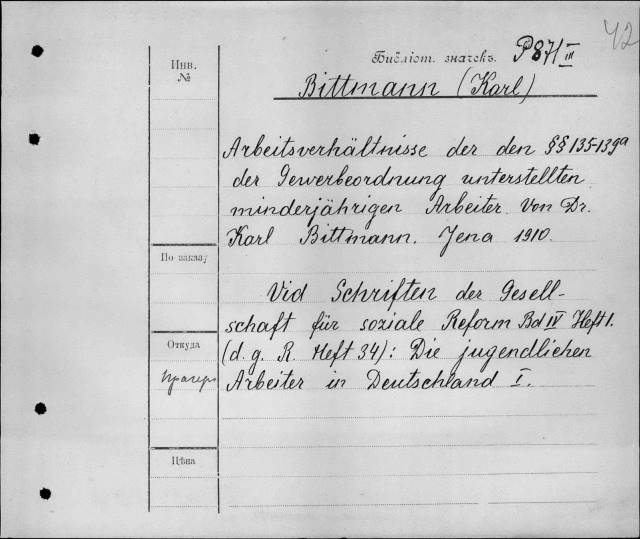 42
Библіот. значекъ. P871 III
Инв.
№
Bittmann (Karl)
Arbeitsverhältnisse der den §§ 135-139a
der Gewerbeordnung unterstellten
minderjährigen Arbeiter. Von Dr.
Karl Bittmann. Jena 1910.
По заказу
Vid Schriften der Gesell-
schaft für soziale Reform Bd IV Heft 1.
Откуда
(d. g. R. Heft 34): Die jugendlichen
Прагеръ
Arbeiter in Deutschland I.
Цѣна